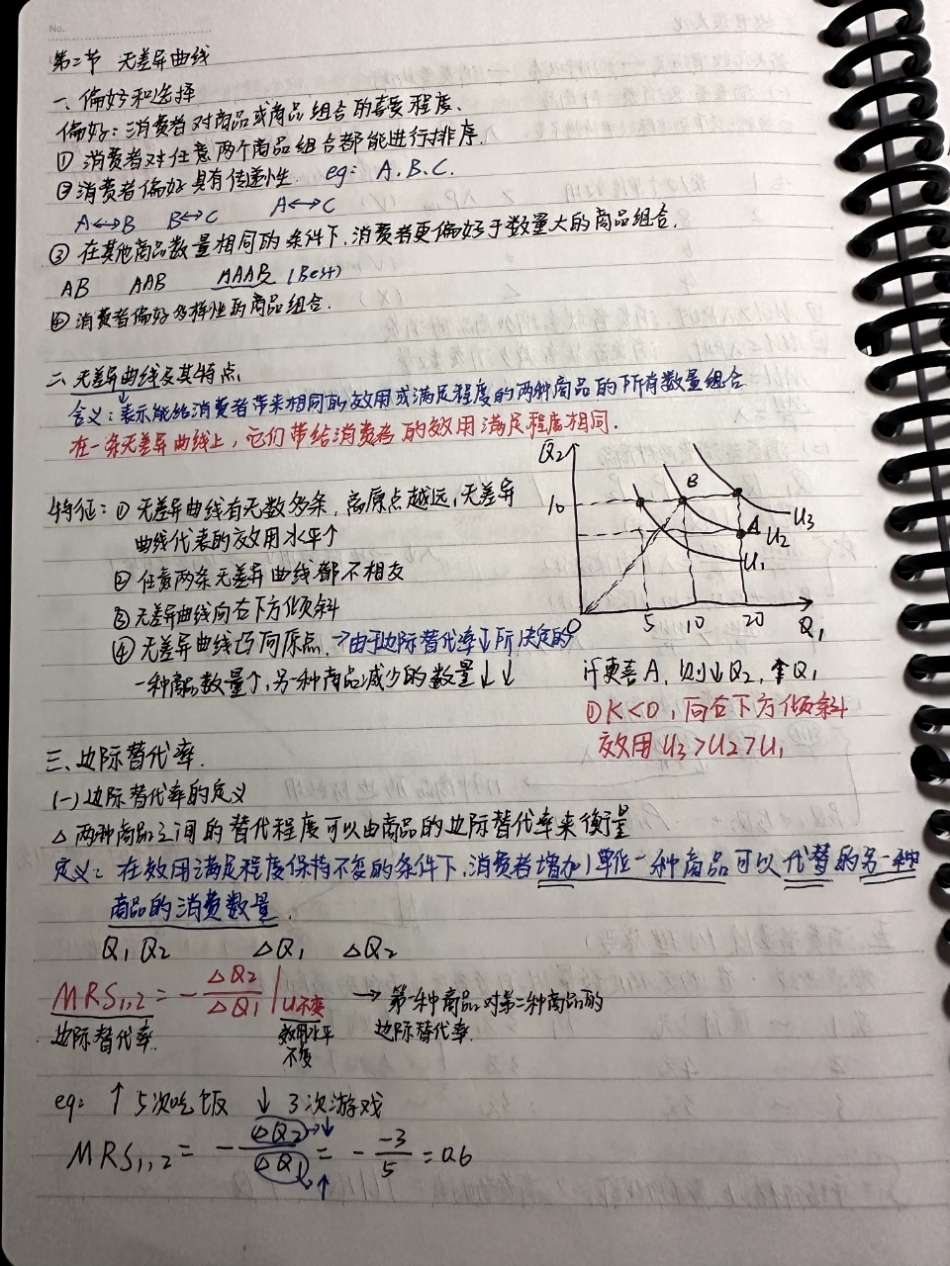 No.
第二节 无差异曲线
一、偏好和选择
偏好:消费者对商品或商品组合的喜爱程度.
① 消费者对任意两个商品组合都能进行排序.
② 消费者偏好具有传递性. eg: A.B.C.
A↔B B↔C A↔C
③ 在其他商品数量相同的条件下.消费者更偏好于数量大的商品组合.
AB AAB AAAB (Best)
④ 消费者偏好多样性的商品组合.
二、无差异曲线及其特点
含义:表示能给消费者带来相同的效用或满足程度的两种商品的所有数量组合
在一条无差异曲线上,它们带给消费者的效用满足程度相同.
特征:① 无差异曲线有无数多条,离原点越远,无差异
曲线代表的效用水平↑
② 任意两条无差异曲线都不相交
③ 无差异曲线向右下方倾斜
④ 无差异曲线凸向原点.→由于边际替代率↓所决定的
一种商品数量↑,另一种商品减少的数量↓↓
Q2
10
B
A
U3
U2
U1
0
5 10 20
Q1
许更喜A,则↓Q2,↑Q1
①K<0,向右下方倾斜
效用U3>U2>U1
三、边际替代率.
(一)边际替代率的定义
△两种商品之间的替代程度可以由商品的边际替代率来衡量
定义:在效用满足程度保持不变的条件下,消费者增加1单位一种商品可以代替的另一种
商品的消费数量.
Q1 Q2 △Q1 △Q2
MRS1,2=-△Q2/△Q1|U不变 → 第一种商品对第二种商品的
边际替代率 效用水平不变 边际替代率.
eg: ↑5次吃饭 ↓3次游戏
MRS1,2=-△Q2→↓/△Q1→↑=--3/5=0.6